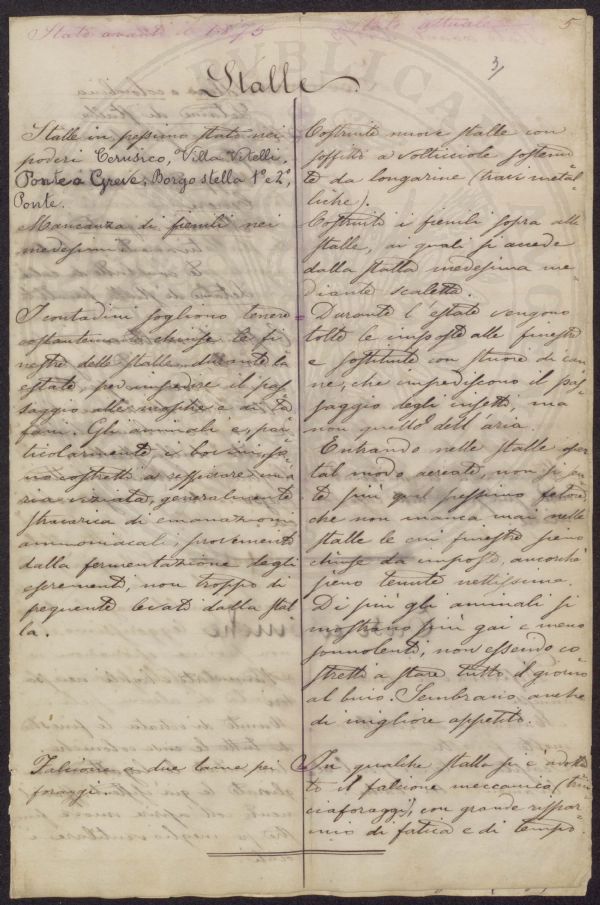 Stato avanti il 1875
Stato attuale
5
3/
Stalle
Stalle in pessimo stato nei
poderi Cerusico, Villa Vitelli,
Ponte a Greve, Borgo stella 1º e 2º,
Ponte.
Mancanza di fienili nei
medesimi.
I contadini sogliono tenere
costantemente chiuse le fi
nestre delle stalle durante la
estate per impedire il pas
saggio alle mosche e ai ta
fani. Gli animali e, par
ticolarmente i bovini, so
no costretti a respirare un'a
ria viziata, generalmente
stracarica di emanazioni
ammoniacali, provenienti
dalla fermentazione degli
escrementi, non troppo di
frequente levati dalla stal
la.
Falcione a due lame pei
foraggi.
Costruite nuove stalle con
soffitti a volticciole sostenu
te da longarine (travi metal
liche).
Costruiti i fienili sopra alle
stalle, ai quali si accede
dalla stalla medesima me
diante scaletta.
Durante l'estate vengono
tolte le imposte alle finestre
e sostituite con stuoie di can
ne, che impediscono il pas
saggio degli insetti, ma
non quello dell'aria.
Entrando nelle stalle
tal modo aereate, non si sen
te più quel pessimo fetore,
che non manca mai nelle
stalle le cui finestre sieno
chiuse da imposte, ancorchè
sieno tenute nettissime.
Di più gli animali si
mostrano più gai e meno
sonnolenti, non essendo co
stretti a stare tutto il giorno
al buio. Sembrano anche
di migliore appetito.
In qualche stalla si è adotta
to il falcione meccanico (trin
ciaforaggi), con grande rispar
mio di fatica e di tempo.